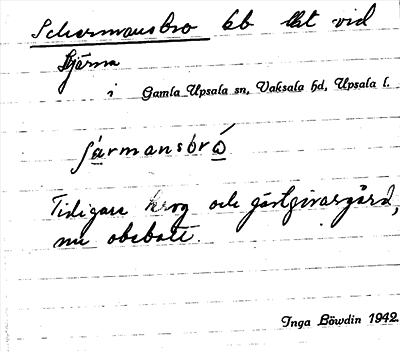 Schermansbro bb llt vid
Bjärna
i Gamla Upsala sn, Vaksala hd, Upsala l.
ʃärmansbro
Tidigare krog och gästgivargård,
nu obebott.
Inga Löwdin 1942.